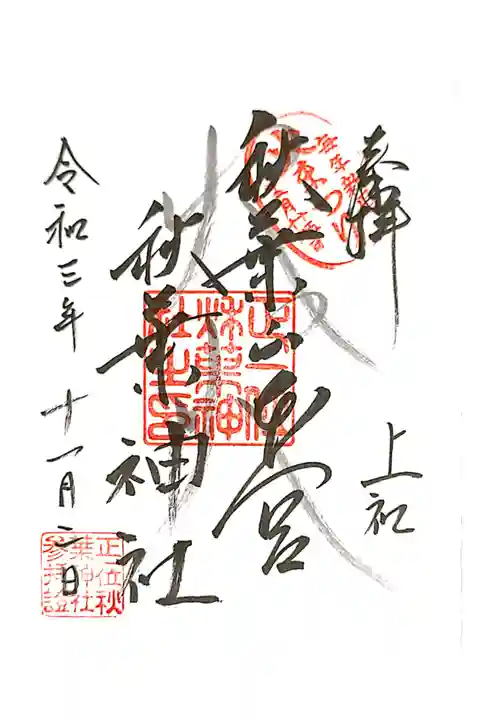 奉拜
上社
秋葉山本宮
秋葉神社
令和三年 十一月二日
正一位
秋葉神
社之印
正一位秋
葉神社
参拝證
毎年新